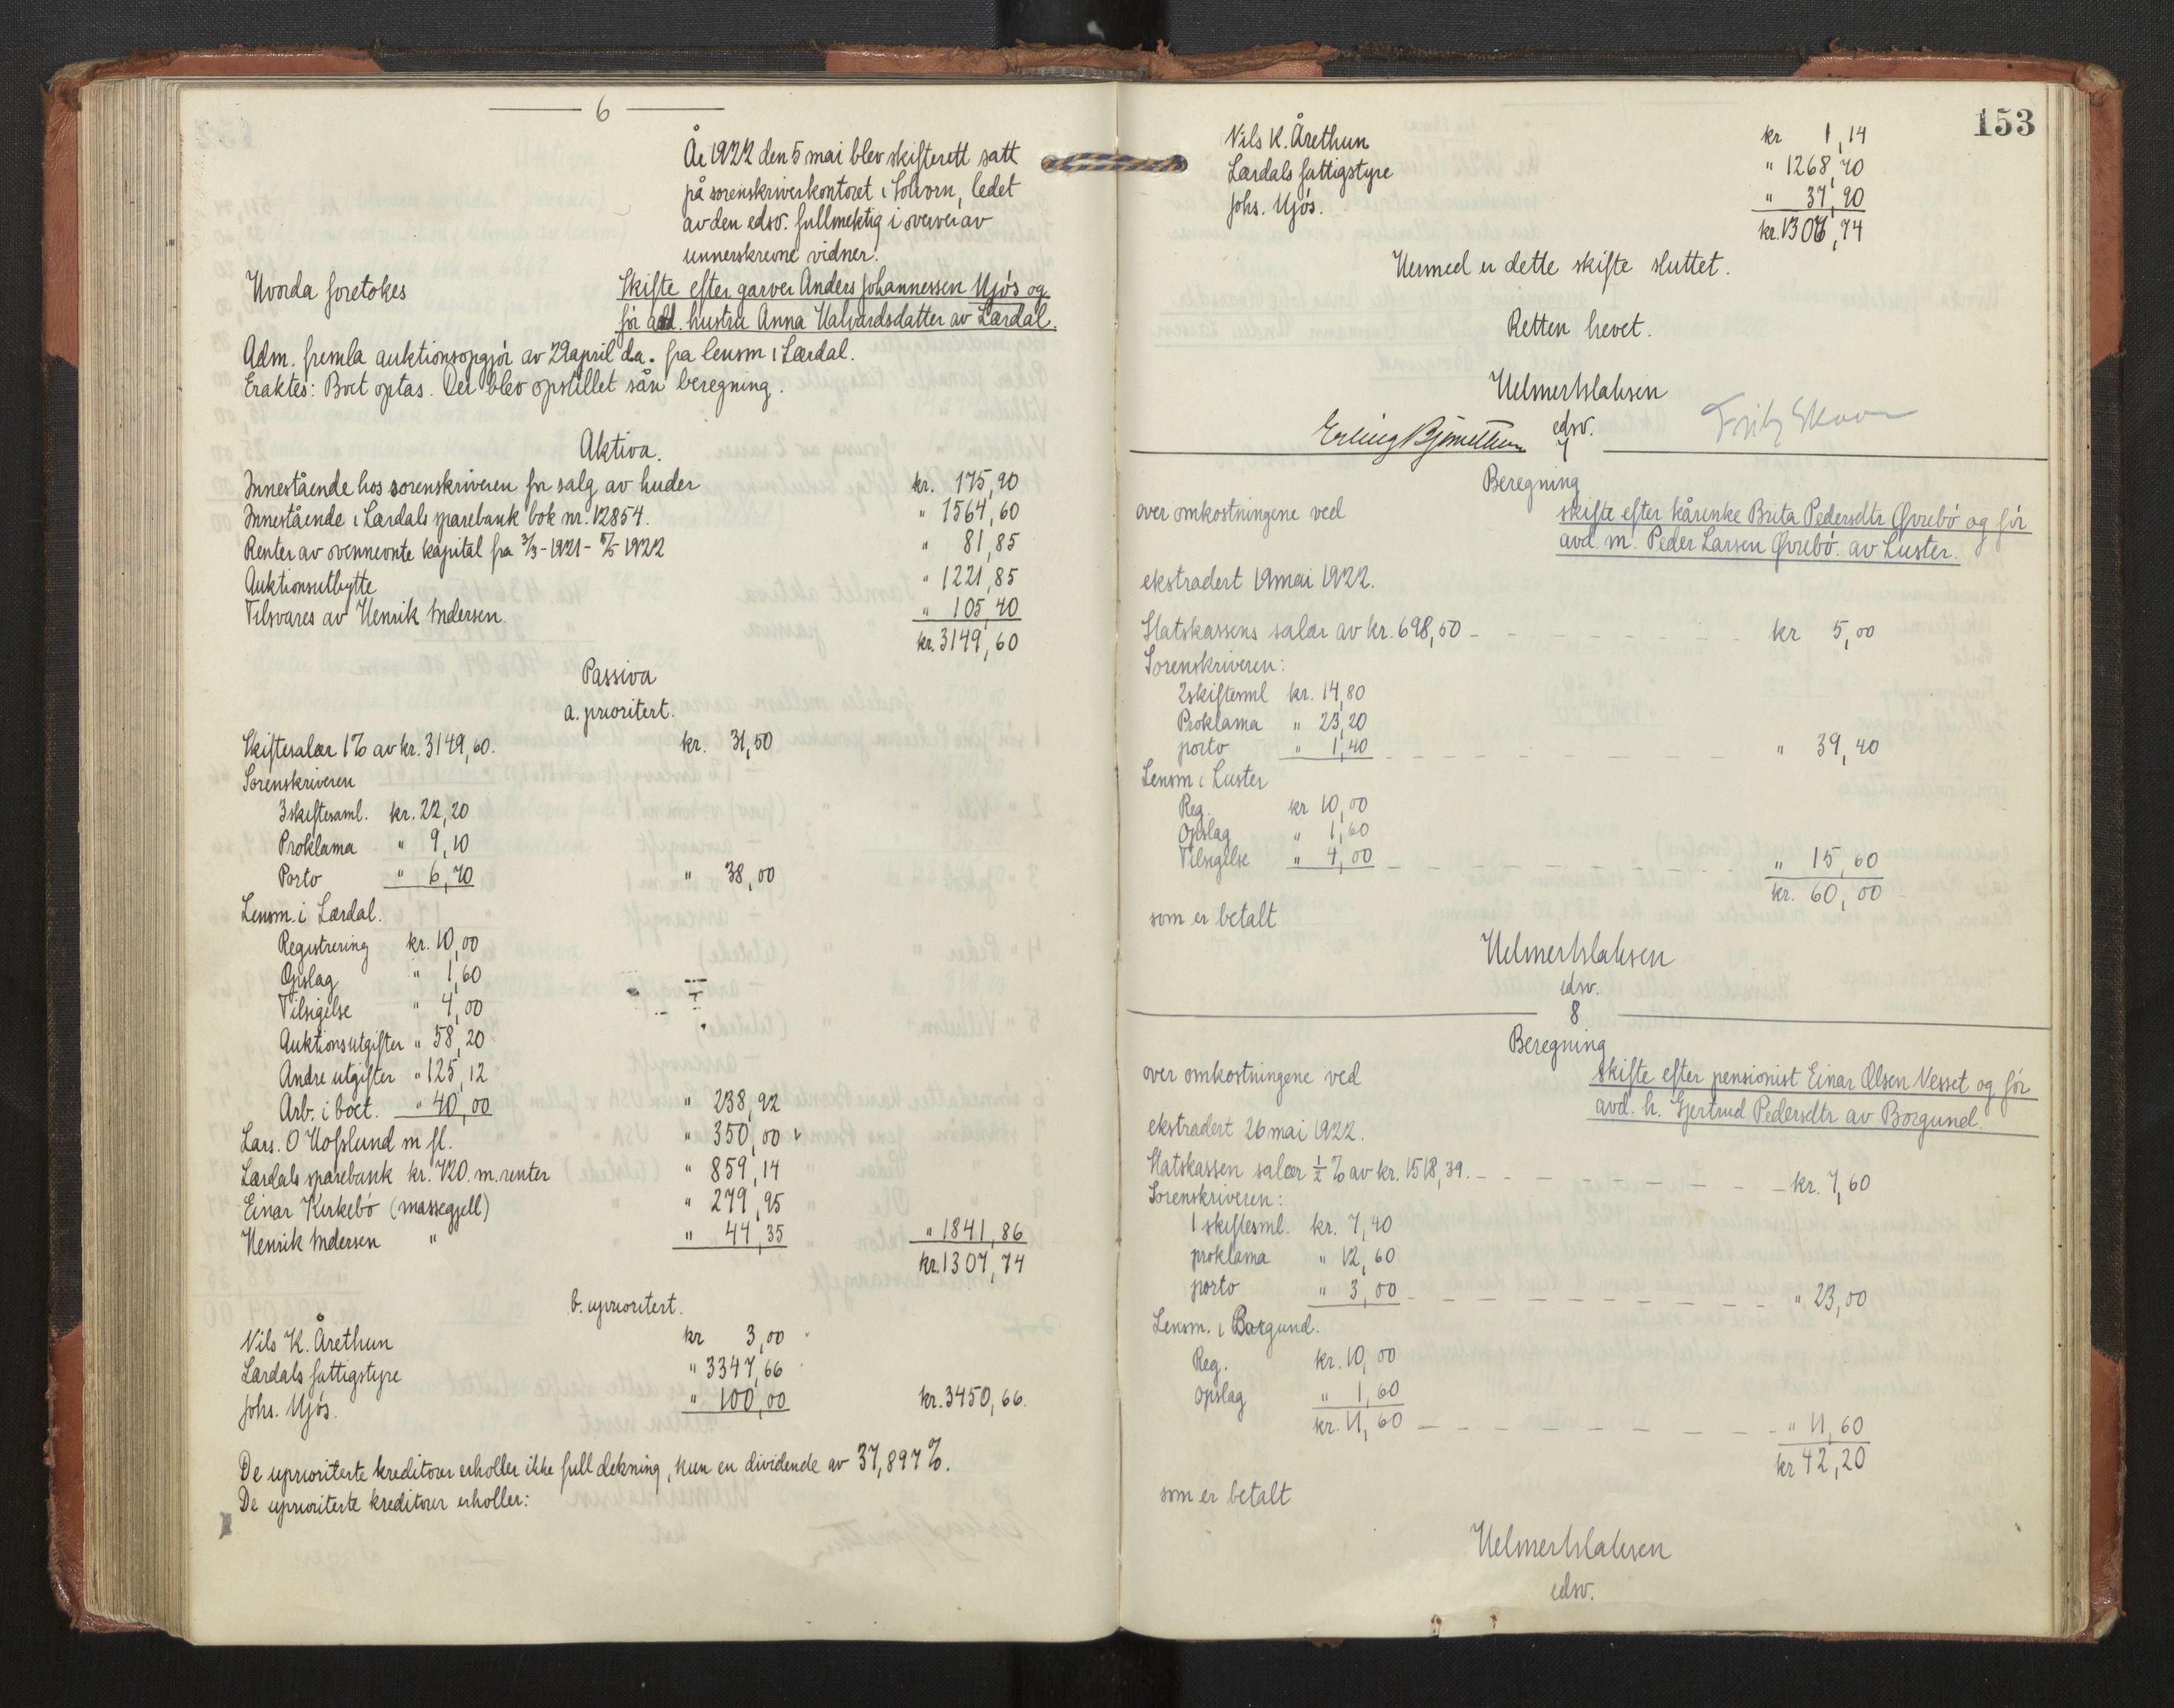 6
År 1922 den 5 mai blev skifterett satt
på sorenskriverkontoret i Solvorn, ledet
av den edsv. fullmektig i overvei av
unnerskrevne vidner.
Hvorda foretokes Skifte efter garver Anders Johannessen Hjös og
för avd. hustru Anna Halvardsdatter av Lærdal.
Adm. fremla auktionsopgjör av 29 april d.a. fra lensm i Lærdal.
Eraktes: Boet optas. Der blev opstillet sån beregning.
Aktiva.
Innestående hos sorenskriveren for salg av huder kr. 175,90
Innestående i Lærdals sparebank bok nr. 12854. " 1564,60
Renter av ovennevnte kapital fra 3/3-1921 - 5/5 1922 " 81,85
Auktionsutbytte " 1221,85
Tilsvares av Henrik Andersen. " 105,40
kr. 3149,60
Passiva
a. prioritert.
Skiftesalær 1% av kr. 3149,60. kr. 31,50
Sorenskriveren
3 skiftesaml. kr. 22,20
Proklama " 9,10
Porto " 6,70 " 38,00
Lensm. i Lærdal.
Registrering kr. 10,00
Opslag " 1,60
Tilsigelse " 4,00
Auktionsutgifter " 58,20
Andre utgifter " 125,12
Arb. i boet. " 40,00 " 238,92
Lars. O Hofslund m fl. " 350,00
Lærdals sparebank kr. 720. m. renter " 859,14
Einar Kirkebö (massegjell) " 279,95
Henrik Andersen " " 44,35 " 1841,86
kr. 1307,74
b. uprioritert.
Nils K. Årethun kr 3,00
Lærdals fattigstyre " 3347,66
Johs. Hjös. " 100,00 kr. 3450,66.
De uprioriterte kreditorer erholler ikke full dekning, kun en dividende av 37,897%.
De uprioriterte kreditorer erholler:
153
Nils K. Årethun kr 1,14
Lærdals fattigstyre " 1268,70
Johs. Hjös. " 37,90
kr. 1307,74
Hermed er dette skifte sluttet.
Retten hevet.
Helmer Islaksen
edsv.
Erling Bjömethun Fritz Skoor
7
Beregning
over omkostningene ved skifte efter kårenke Brita Pedersdtr Øvrebö og för
avd. m. Peder Larsen Øvrebö. av Luster.
ekstradert 19 mai 1922.
Statskassens salær av kr. 698,50 - - - kr 5,00
Sorenskriveren:
2 skiftesml kr. 14,80
Proklama " 23,20
porto " 1,40 - - - " 39,40
Lensm i Luster
Reg. kr 10,00
Opslag " 1,60
Tilsigelse " 4,00 - - - " 15,60
kr. 60,00
som er betalt
Helmer Islaksen
edsv.
8
Beregning
over omkostningene ved skifte efter pensionist Einar Olsen Nesset og för
avd. h. Gjertrud Pedersdtr av Borgund.
ekstradert 26 mai 1922.
Statskassen salær ½ % av kr. 1518,39. - - - kr. 7,60
Sorenskriveren:
1 skiftesml. kr. 7,40
proklama " 12,60
porto " 3,00 - - - " 23,00
Lensm. i Borgund.
Reg. kr. 10,00
opslag " 1,60
kr. 11,60 - - - " 11,60
kr 42,20
som er betalt
Helmer Islaksen
edsv.